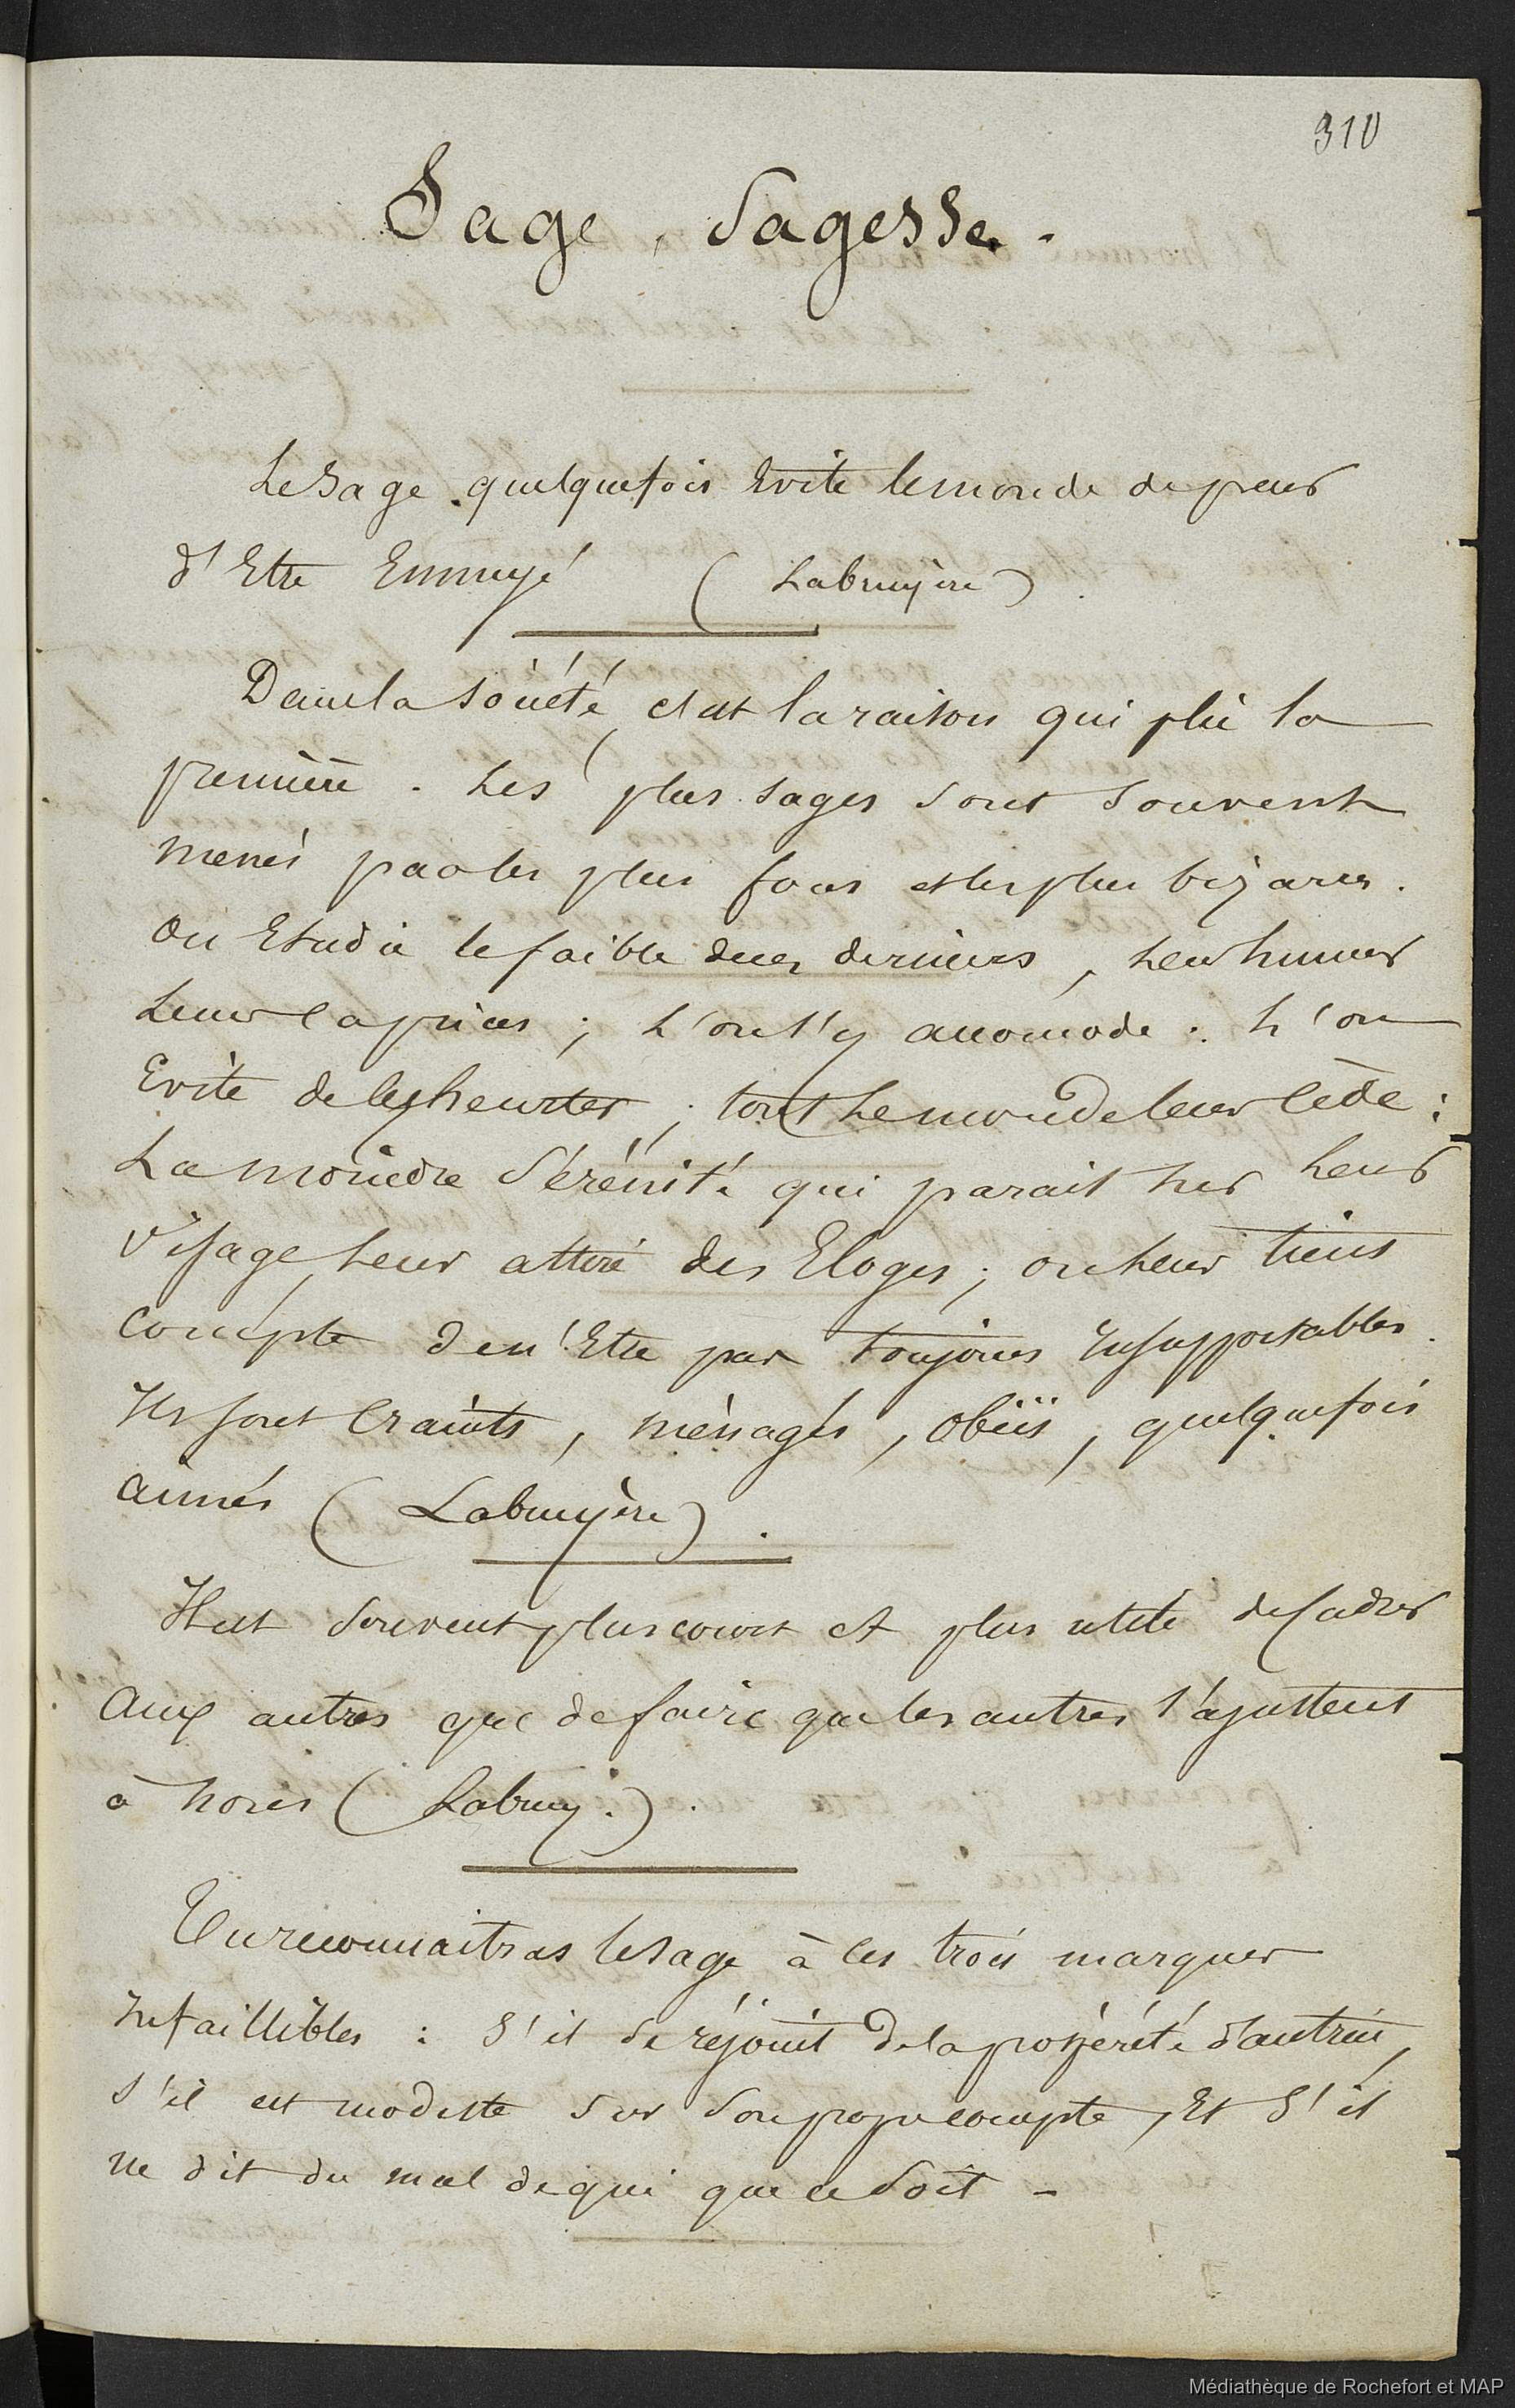 310
Sage, Sagesse.
Le Sage quelquefois Evite le monde de peur
d'Etre Ennuyé (Labruyère).
Dans la société, c'est la raison qui plie la
première. Les plus sages sont souvent
menés par les plus fous et les plus bizares.
On Etudie le faible de ces derniers, leur humeur
leurs caprices ; l'on s'y accomode : l'on
Evite de les heurter ; tout le monde leur cède :
La moindre sérénité qui parait sur leur
visage leur attire des Eloges ; on leur tient
compte de n'Etre pas toujours Insupportables.
Ils sont craints, ménagés, obéis, quelquefois
aimés (Labruyère).
Il est souvent plus court et plus utile de cadrer
aux autres que de faire que les autres s'ajustent
à nous (Labruy.).
Tu reconnaitras le sage à ces trois marques
Infaillibles : S'il se réjouit de la prospérité d'autrui,
s'il est modeste sur son propre compte, Et S'il
ne dit du mal de qui que ce soit -
Médiathèque de Rochefort et MAP